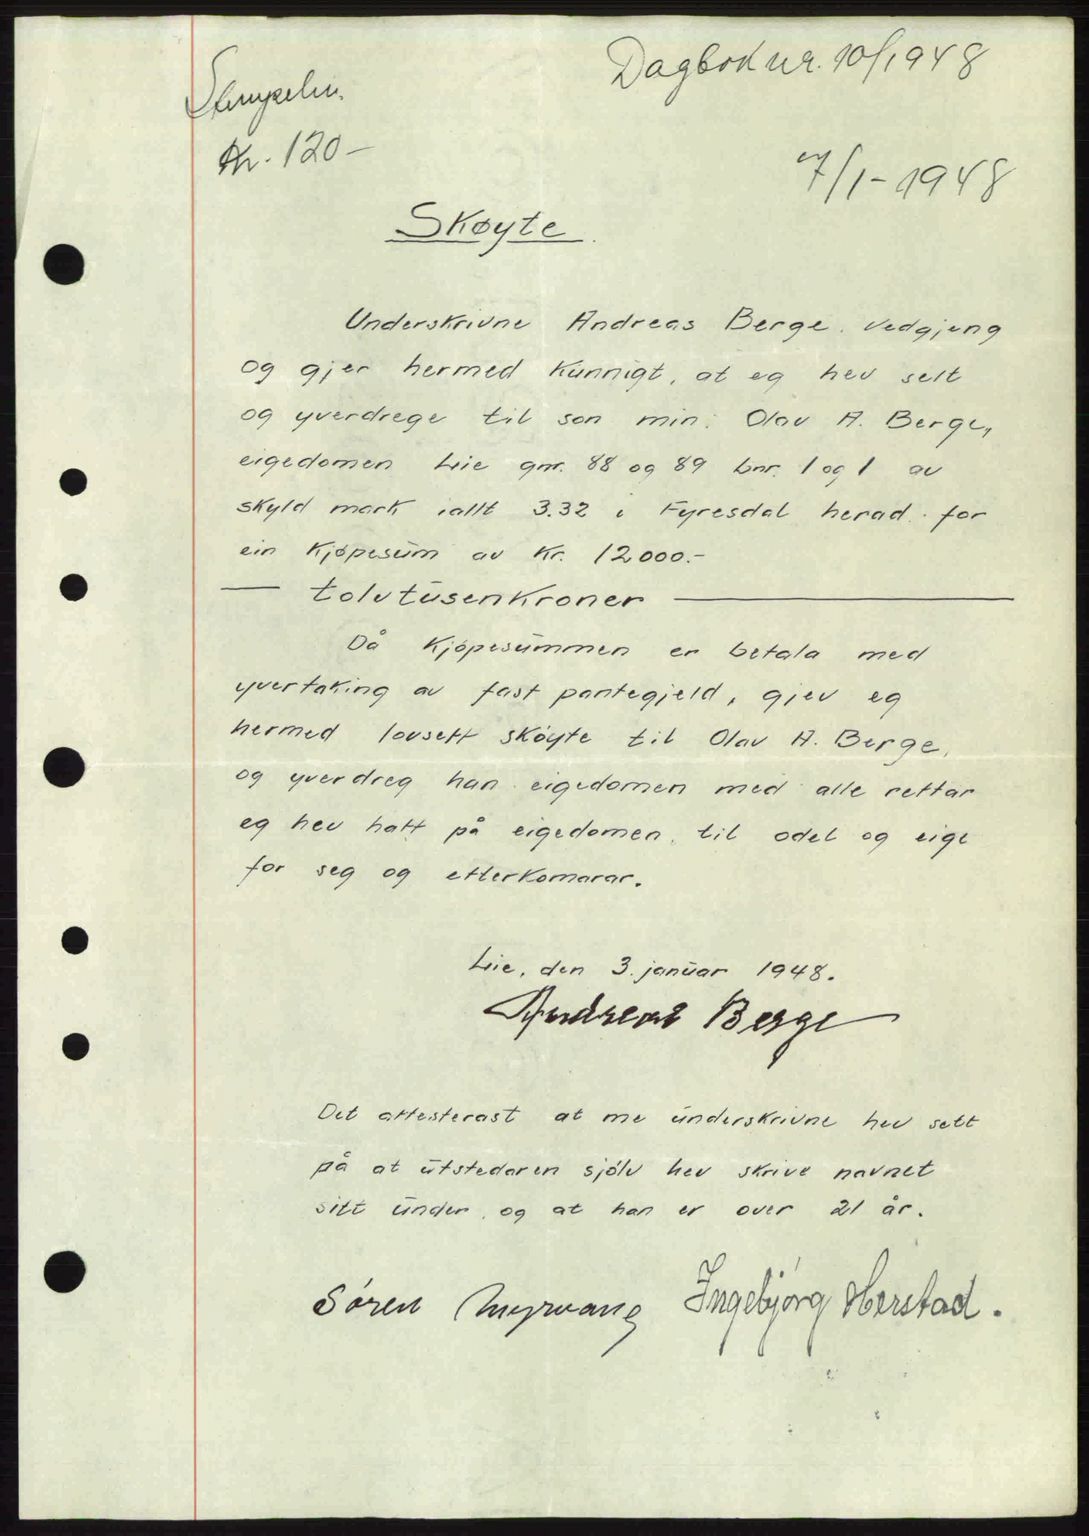 Dagbok nr. 10/1948
Stempelm.
Kr. 120-
7/1-1948
Skøyte.
Underskrivne Andreas Berge. vedgjeng
og gjer hermed kunnigt, at eg hev selt
og yverdrege til son min: Olav A. Berge,
eigedomen Lie gnr. 88 og 89 bnr. 1 og 1 av
skyld mark iallt 3.32 i Fyresdal herad. for
ein kjøpesum av Kr. 12000.-
— tolvtusenkroner —
Då kjøpesummen er betala med
yvertaking av fast pantegjeld, gjev eg
hermed lovsett skøyte til Olav A. Berge,
og yverdreg han eigedomen med alle rettar
eg hev hatt på eigedomen, til odel og eige
for seg og etterkomarar.
Lie, den 3. januar 1948.
Andreas Berge
Det attesterast at me underskrivne hev sett
på at utstedaren sjølv hev skrive navnet
sitt under, og at han er over 21 år.
Søren Myrvang Ingebjørg Herstad.